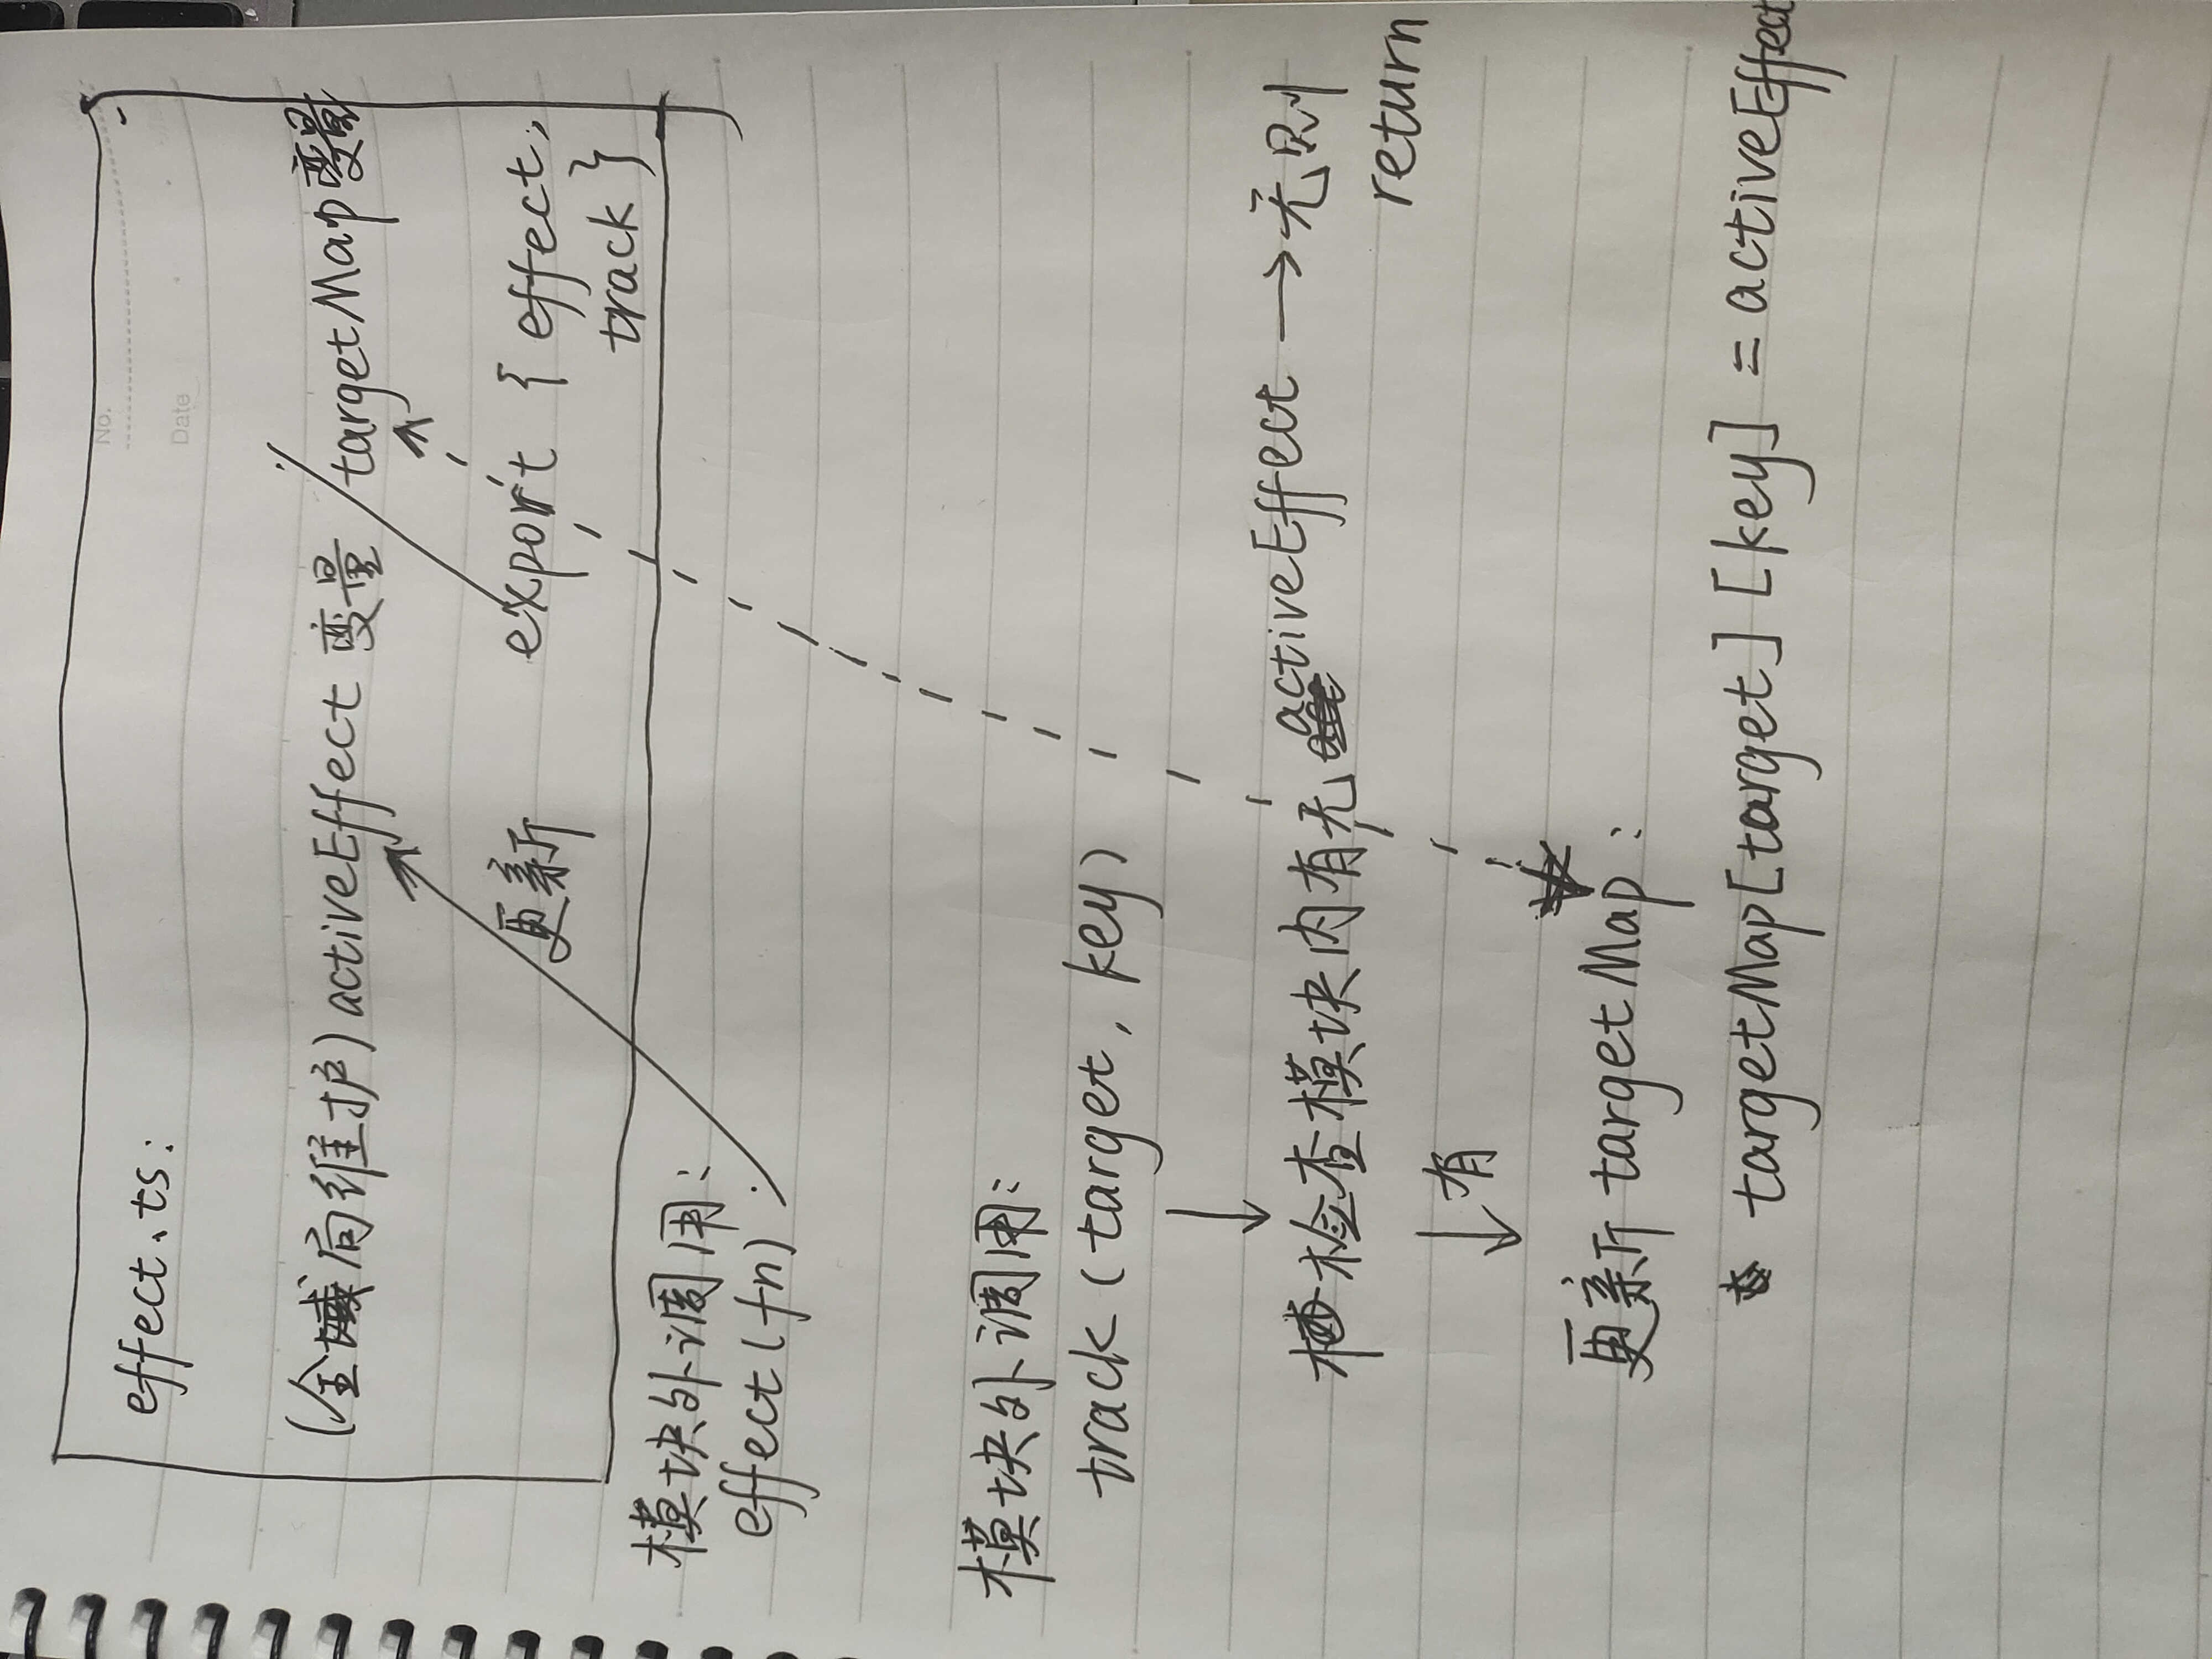 No.
Date
effect.ts:
(全局维护) activeEffect 变量 / targetMap变量
更新 export { effect,
track }
模块外调用:
effect(fn)
模块外调用:
track (target, key)
检查模块内有无 activeEffect → 无则
return
有
更新 targetMap:
targetMap[target] [key] = activeEffect